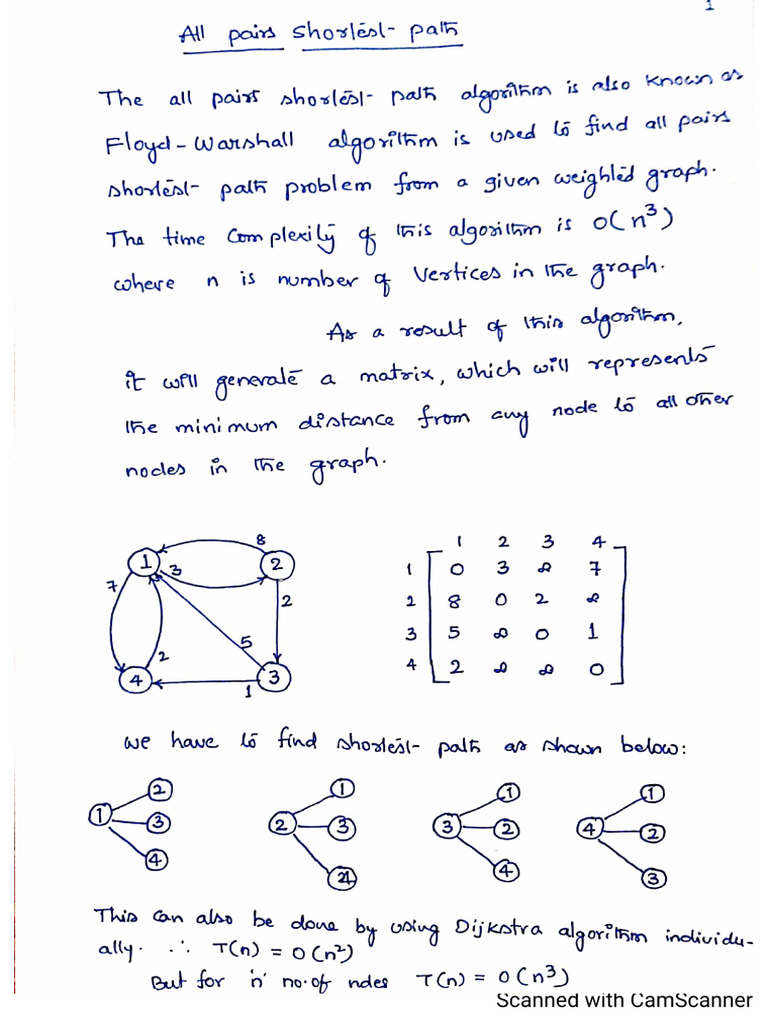 1
All pairs shortest- path
The all pairs shortest- path algorithm is also known as
Floyd-Warshall algorithm is used to find all pairs
shortest- path problem from a given weighted graph.
The time complexity of this algorithm is O(n³)
where n is number of vertices in the graph.
As a result of this algorithm,
it will generate a matrix, which will represents
the minimum distance from any node to all other
nodes in the graph.
8
1 3 2
7 2
5
2
4 1 3
1 2 3 4
1 0 3 ∞ 7
2 8 0 2 ∞
3 5 ∞ 0 1
4 2 ∞ ∞ 0
we have to find shortest- path as shown below:
1 2 3 4
2 1 3 4
3 1 2 4
4 1 2 3
This can also be done by using Dijkstra algorithm individu-
ally. ∴ T(n) = O(n²)
But for 'n' no.of ndes T(n) = O(n³)
Scanned with CamScanner